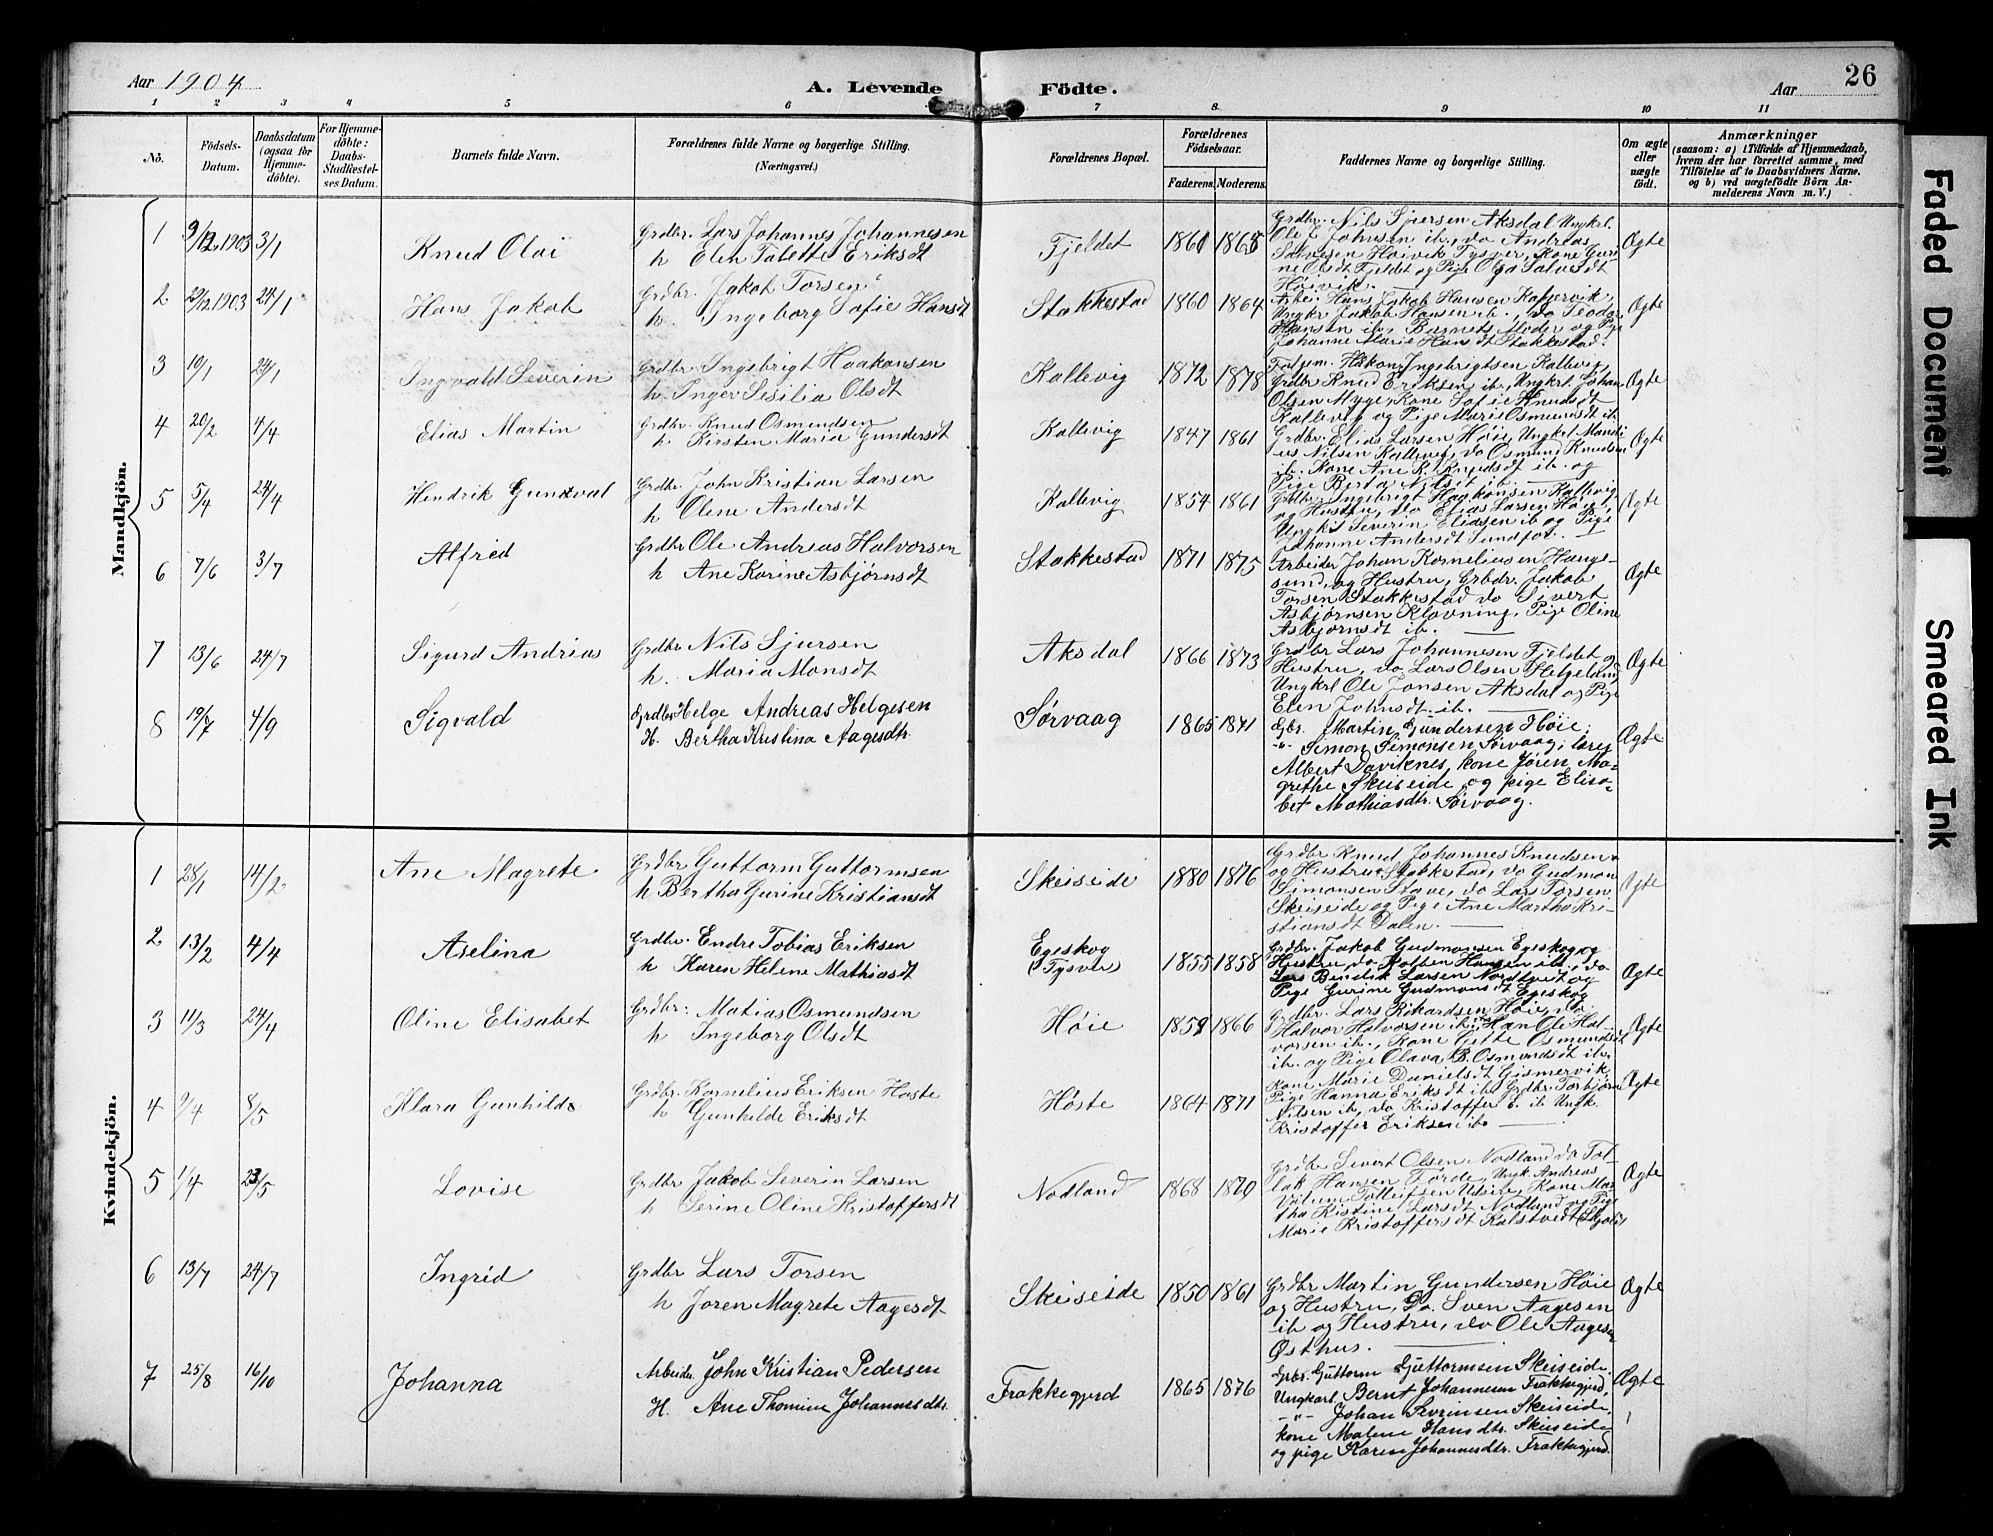 Aar 1904
A. Levende Födte.
Aar
26
1 2 3 4 5 6 7 8 9 10 11
No.
Födsels-Datum.
Daabsdatum (ogsaa for Hjemme-döbte).
For Hjemme-döbte: Daabs-Stadfæstel-ses Datum.
Barnets fulde Navn.
Forældrenes fulde Navne og borgerlige Stilling. (Næringsvei.)
Forældrenes Bopæl.
Forældrenes Födselsaar.
Faderens. Moderens.
Faddernes Navne og borgerlige Stilling.
Om ægte eller uægte födt.
Anmærkninger
(saasom: a) i Tilfælde af Hjemmedaab, hvem der har forrettet samme, med Tilföielse af to Daabsvidners Navne. og b) ved uægtefödte Börn An-melderens Navn m. V.)
Mandkjön.
1 9/12 1903 3/1 Knud Olai
Grdbr. Lars Johannes Johannesen
h Elen Tabette Eriksdt
Fjeldet 1861 1865
Grdbr. Nils Sjursen Aksdal Ungkrl.
Ole E Johnsen ib, do Andreas
Salvesen Høivik Tysvær, Kone Guri-
ne Olsdt Fjeldet og Pige Olga Salvesdt
Høivik.
Ægte
2 29/12 1903 24/1 Hans Jakob
Grdbr. Jakob Torsen
h. Ingeborg Sofie Hansdt
Stakkestad 1860 1864
Arbei. Hans Jakob Hansen Kopervik,
Ungkr Jakob Hansen ib., do Teodor
Hansen ib, Barnets Moder og Pige
Johanne Marie Hansdt Stakkestad.
Ægte
3 10/1 24/1 Ingvald Severin
Grdbr Ingebrigt Haakonsen
h. Inger Sesilia Olsdt
Kallevig 1872 1878
Håkon Ingebrigtsen Kallevig,
Grdbr Knud Eriksen ib, Ungkrl. Johan
Olsen Myge, Kone Sofie Knudsdt
Kallevig og Pige Marie Osmundsdt ib
Ægte
4 20/2 4/4 Elias Martin
Grdbr. Knud Osmundsen
h. Kirsten Maria Gundersdt
Kallevig 1847 1861
Grdbr. Elias Larsen Høie, Ungkrl Mandi-
us Nilsen Kallevig, do Osmund Knudsen
ib. Kone Ane K. Knudsdt ib. og
Pige Berta Nilsdt ib.
Ægte
5 5/4 24/4 Hendrik Gundval
Grdbr. John Kristian Larsen
h Oline Andersdt
Kallevig 1854 1861
Grdbr Ingebrigt Haakonsen Kallevig
og Hustru, do Elias Larsen Høie,
Ungkrl Severin Eliasen ib og Pige
Johanne Andersdt Sundfør.
Ægte
6 7/6 3/7 Alfred
Grdbr Ole Andreas Halvorsen
h Ane Karine Asbjørnsdt
Stakkestad 1871 1875
Arbeider Johan Korneliusen Hauge-
sund og Hustru, Grbdr. Jakob
Torsen Stakkestad do Sivert
Asbjørnsen Klovning, Pige Oline
Asbjørnsdt ib.
Ægte
7 13/6 24/7 Sigurd Andreas
Grdbr Nils Sjursen
h. Maria Monsdt
Aksdal 1866 1873
Grdbr Lars Johannesen Fjeldet og
Hustru, do Lars Olsen Helgeland
Ungkrl Ole Jonsen Aksdal og Pige
Elen Johnsdt. ib.
Ægte
8 19/7 4/9 Sigvald
Grdbr Helge Andreas Helgesen
H. Bertha Kristina Aagesdtr.
Sørvaag 1865 1871
Gbr. Martin Gundersen Høie;
-"- Simon Simonsen Sørvaag; lærer
Albert Daviknes, kone Jøren Ma-
grethe Skeiseide, og pige Elisa-
bet Mathiasdtr. Sørvaag.
Ægte
Kvindekjön.
1 28/1 14/2 Ane Magrete
Grdbr Guttorm Guttormsen
h Bertha Gurine Kristiansdt
Skeiseide 1880 1876
Grdbr Knud Johannes Knudsen
og Hustru Stakkestad, do Gudmon
Simonsen Stave, do Lars Torsen
Skeiseide og Pige Ane Martha Kri-
stiansdt Dalen.
Ægte
2 13/2 4/4 Aselina
Grdbr. Endre Tobias Eriksen
h Karen Helene Mathiasdt
Egeskog
(Tysvær) 1855 1858
Grdbr. Jakob Gudmonsen Egeskog og
Hustru, do Holten Hansen ib., do
Lars Bendik Larsen Nordtveit og
Pige Gurine Gudmonsdt Egeskog
Ægte
3 11/3 24/4 Oline Elisabet
Grdbr: Matias Osmundsen
h Ingeborg Olsdt
Høie 1859 1866
Grdbr. Lars Rikardsen Høie, do.
Halvor Halvorsen ib, Han Ole Hal-
vorsen ib., Kone Gitte Osmundsdt
ib. og Pige Olava B. Osmundsdt ib.
Ægte
4 9/4 8/5 Klara Gunhilde
Grdbr. Kornelius Eriksen Høste
h Gunhilde Eriksdt
Høste 1864 1871
Kone Marie Danielsdt Gismervik
Pige Hanna Eriksdt ib. Grdbr. Torbjørn
Nilsen ib, do Kristoffer E. ib Ungk.
Kristoffer Eriksen ib.
Ægte
5 1/4 23/5 Lovise
Grdbr Jakob Severin Larsen
h Serine Oline Kristoffersdt
Nodland 1868 1870
Grdbr Sivert Olsen Nodland do Tol-
lak Hansen Førde, Ungk. Andreas
Vilum Tolleifsen Utsire, Kone Mar-
tha Kistine Larsdt Nodland og Pige
Marie Kristoffersdt Kalstvedt
Ægte
6 13/7 24/7 Ingrid
Grdbr Lars Torsen
h Joren Magrete Aagesdt
Skeiseide 1850 1861
Grdbr Martin Gundersen Høie
og Hustru, Do. Sven Aagesen
ib og Hustru, do Ole Aagesen
Østhus.
Ægte
7 25/8 16/10 Johanna
Arbeider. John Kristian Pedersen
H. Ane Thomine Johannesdtr.
Frakkegjerd 1865 1876
Grbr. Guttorm Guttormsen Skeiseide,
Ungkarl Bernt Johannesen Frakkegjerd,
-"- Johan Severinsen Skeiseide,
kone Malene Hansdtr. Skeiseide
og pige Karen Johannesdtr. Frakkegjerd.
Ægte
Faded Document
Smeared Ink